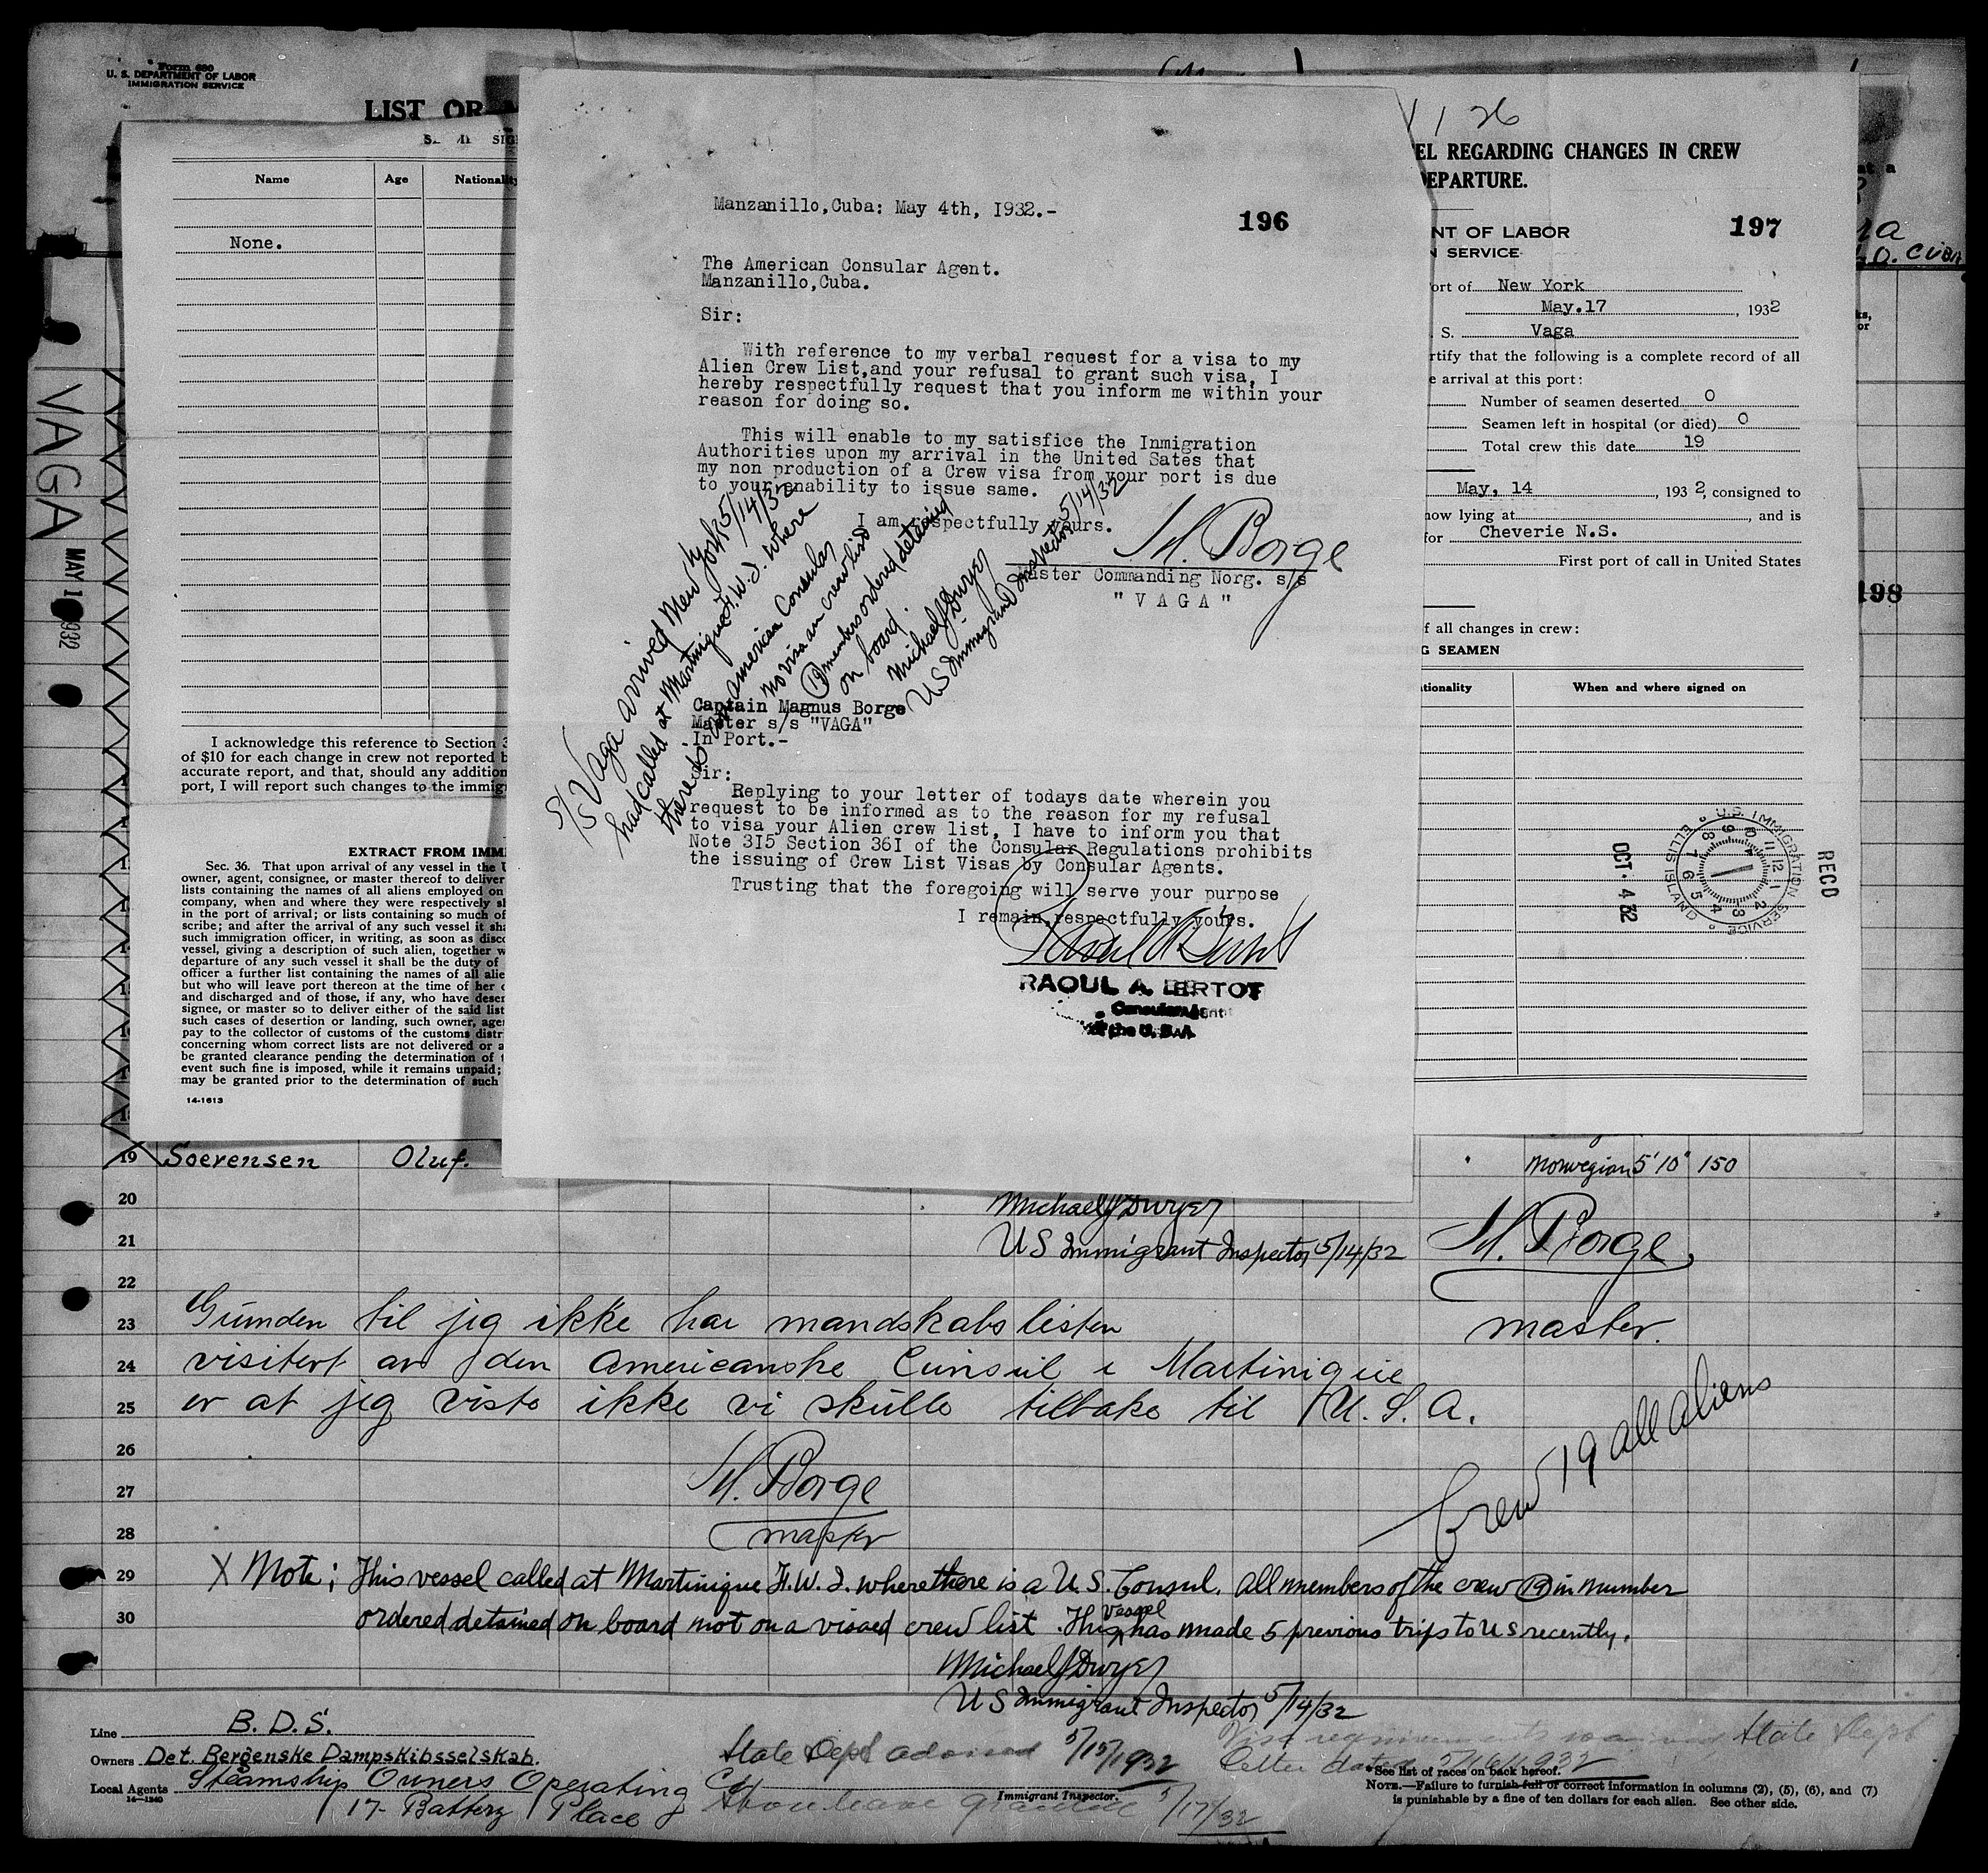 Form 680
U. S. DEPARTMENT OF LABOR
IMMIGRATION SERVICE
LIST OR
Name
Age
Nationality
None.
I acknowledge this reference to Section 3
of $10 for each change in crew not reported b
accurate report, and that, should any addition
port, I will report such changes to the immig
EXTRACT FROM IMM
Sec. 36. That upon arrival of any vessel in the U
owner, agent, consignee, or master thereof to deliver
lists containing the names of all aliens employed on
company, when and where they were respectively s
in the port of arrival; or lists containing so much of
scribe; and after the arrival of any such vessel it sha
such immigration officer, in writing, as soon as disc
vessel, giving a description of such alien, together w
departure of any such vessel it shall be the duty of
officer a further list containing the names of all alie
but who will leave port thereon at the time of her
and discharged and of those, if any, who have deser
signee, or master so to deliver either of the said list
such cases of desertion or landing, such owner, agen
pay to the collector of customs of the customs distr
concerning whom correct lists are not delivered or a
be granted clearance pending the determination of t
event such fine is imposed, while it remains unpaid;
may be granted prior to the determination of such
14-1613
VAGA
MAY 1 1932
Manzanillo,Cuba: May 4th, I932.-
196
The American Consular Agent.
Manzanillo,Cuba.
Sir:
With reference to my verbal request for a visa to my
Alien Crew List,and your refusal to grant such visa, I
hereby respectfully request that you inform me within your
reason for doing so.
This will enable to my satisfice the Inmigration
Authorities upon my arrival in the United Sates that
my non production of a Crew visa from your port is due
to your enability to issue same.
I am respectfully yours.
M. Borge
Master Commanding Norg. s/s
" V A G A "
S/S Vaga arrived New York 5/14/32
had called at Martinique F.W.I. where
there is an american Consular
no visa on crew list
19 members ordered detained
on board.
Michael J Dwyer
US Immigrant Inspector 5/14/32
Captain Magnus Borge
Master s/s "VAGA"
In Port.-
Sir:
Replying to your letter of todays date wherein you
request to be informed as to the reason for my refusal
to visa your Alien crew list, I have to inform you that
Note 3I5 Section 36I of the Consular Regulations prohibits
the issuing of Crew List Visas by Consular Agents.
Trusting that the foregoing will serve your purpose
I remain,respectfully yours.
RAOUL A. BERTOT
Consular Agent
of the U. S. A.
1 26
EL REGARDING CHANGES IN CREW
DEPARTURE.
197
NT OF LABOR
N SERVICE
ort of New York
May.17, 1932
S. Vaga
rtify that the following is a complete record of all
e arrival at this port:
Number of seamen deserted 0
Seamen left in hospital (or died) 0
Total crew this date 19
May, 14, 1932, consigned to
now lying at , and is
for Cheverie N.S.
First port of call in United States
f all changes in crew:
G SEAMEN
tionality
When and where signed on
RECD
U.S. IMMIGRATION SERVICE
ELLIS ISLAND
OCT. 4 32
at a
O. CUBA
198
19 Soerensen Oluf. Norwegian 5'10" 150
20
Michael J Dwyer
21
US Immigrant Inspector 5/14/32
M. Borge
master.
22
23 Grunden til jeg ikke har mandskabslisten
24 visitert av den Americanske Cunsul i Martinique
25 er at jeg viste ikke vi skulle tilbake til U.S.A.
26
27
M. Borge
28
master
Crew 19 all aliens
29 X Note; This vessel called at Martinique F.W.I. where there is a U.S. Consul. All members of the crew 19 in number
30 ordered detained on board not on a visaed crew list. This vessel has made 5 previous trips to US recently.
Michael J Dwyer
US Immigrant Inspector 5/14/32
Line B.D.S.
Owners Det. Bergenske Dampskibsselskab.
Local Agents Steamship Owners Operating Co.
17- Battery Place
14-1240
State Dept advised 5/15/1932
Shore leave granted 5/17/32
Immigrant Inspector.
State Dept
letter dated 5/16/1932
See list of races on back hereof.
NOTE.—Failure to furnish full or correct information in columns (2), (5), (6), and (7)
is punishable by a fine of ten dollars for each alien. See other side.